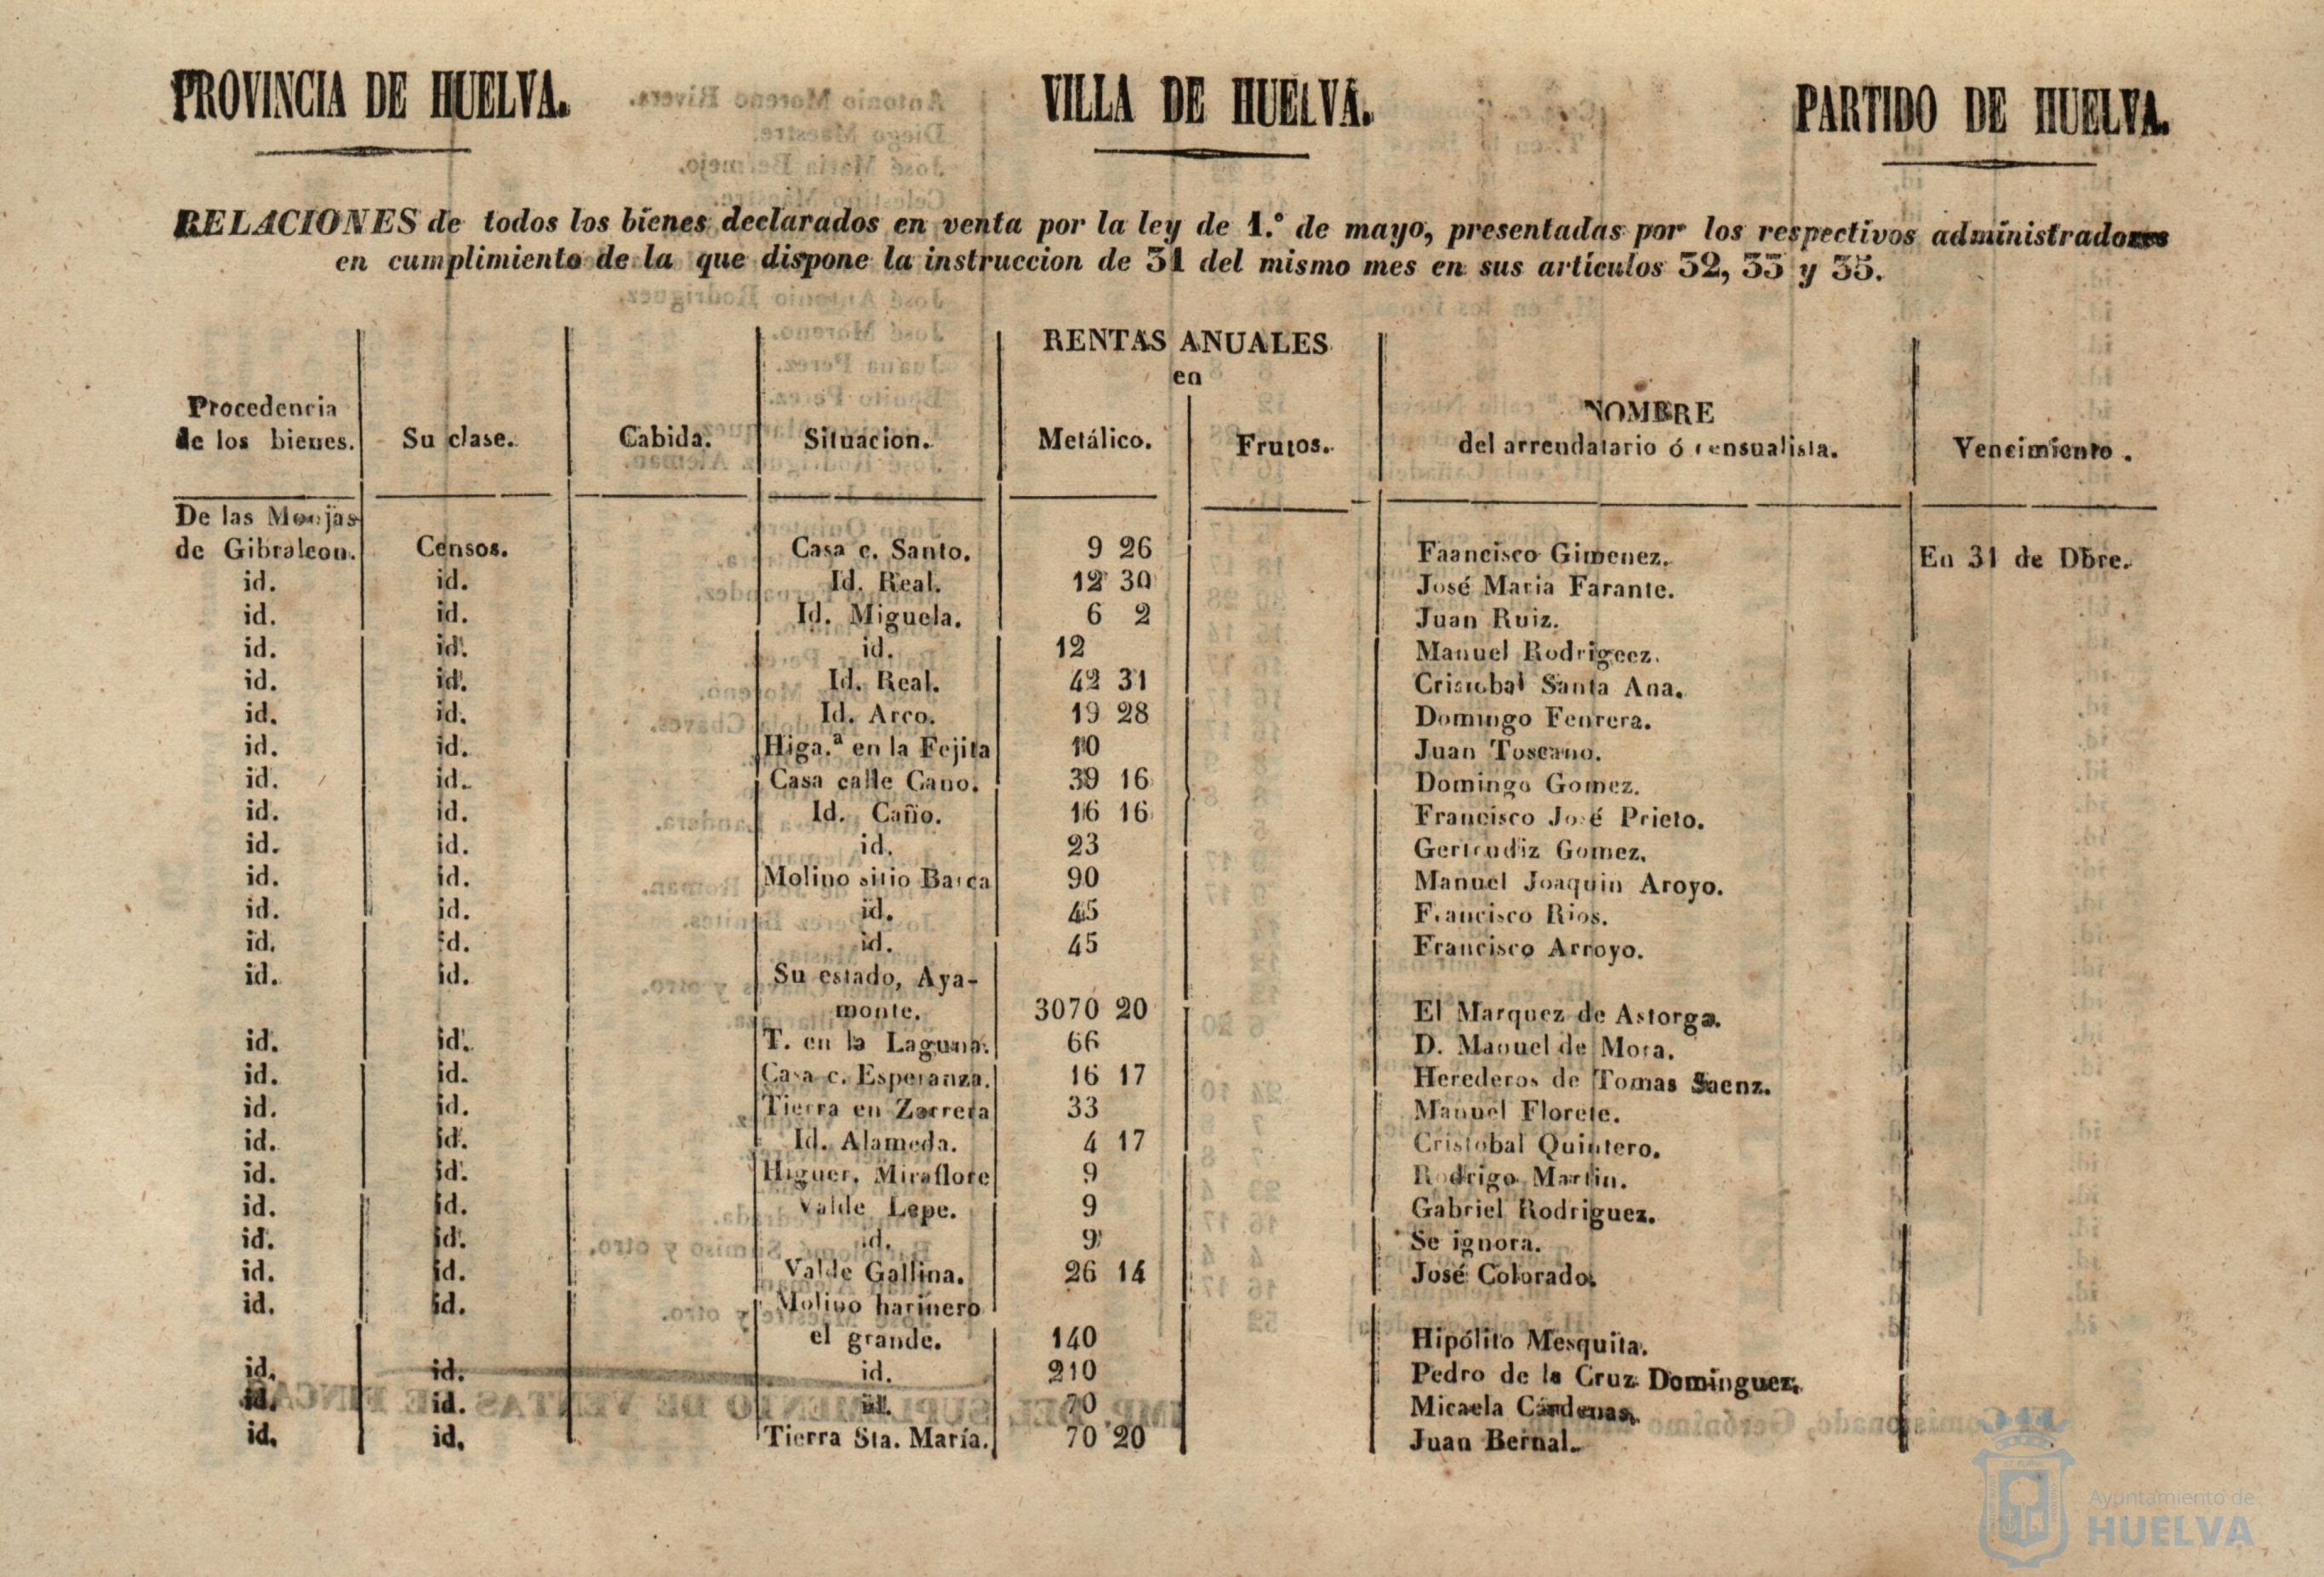 PROVINCIA DE HUELVA. VILLA DE HUELVA. PARTIDO DE HUELVA.
RELACIONES de todos los bienes declarados en venta por la ley de 1.º de mayo, presentadas por los respectivos administradores
en cumplimiento de la que dispone la instruccion de 31 del mismo mes en sus artículos 32, 33 y 35.
RENTAS ANUALES
en
Procedencia NOMBRE
de los bienes. Su clase. Cabida. Situacion. Metálico. Frutos. del arrendatario ó censualista. Vencimiento.
De las Monjas
de Gibraleon. Censos. Casa c. Santo. 9 26 Faancisco Gimenez. En 31 de Dbre.
id. id. Id. Real. 12 30 José Maria Farante.
id. id. Id. Miguela. 6 2 Juan Ruiz.
id. id. id. 12 Manuel Rodrigeez.
id. id. Id. Real. 42 31 Cristobal Santa Ana.
id. id. Id. Arco. 19 28 Domingo Fenrera.
id. id. Higa.ª en la Fejita 10 Juan Toscano.
id. id. Casa calle Cano. 39 16 Domingo Gomez.
id. id. Id. Caño. 16 16 Francisco José Prieto.
id. id. id. 23 Gertrudiz Gomez.
id. id. Molino sitio Barca 90 Manuel Joaquin Aroyo.
id. id. id. 45 Francisco Rios.
id. id. id. 45 Francisco Arroyo.
id. id. Su estado, Aya-
monte. 3070 20 El Marquez de Astorga.
id. id. T. en la Laguna. 66 D. Manuel de Mora.
id. id. Casa c. Esperanza. 16 17 Herederos de Tomas Saenz.
id. id. Tierra en Zorrera 33 Manuel Florete.
id. id. Id. Alameda. 4 17 Cristobal Quintero.
id. id. Higuer. Miraflore 9 Rodrigo Martin.
id. id. Valde Lepe. 9 Gabriel Rodriguez.
id. id. id. 9 Se ignora.
id. id. Valde Gallina. 26 14 José Colorado.
id. id. Molino harinero
el grande. 140 Hipólito Mesquita.
id. id. id. 210 Pedro de la Cruz Dominguez.
id. id. id. 70 Micaela Cárdenas.
id. id. Tierra Sta. María. 70 20 Juan Bernal.
Ayuntamiento de
HUELVA